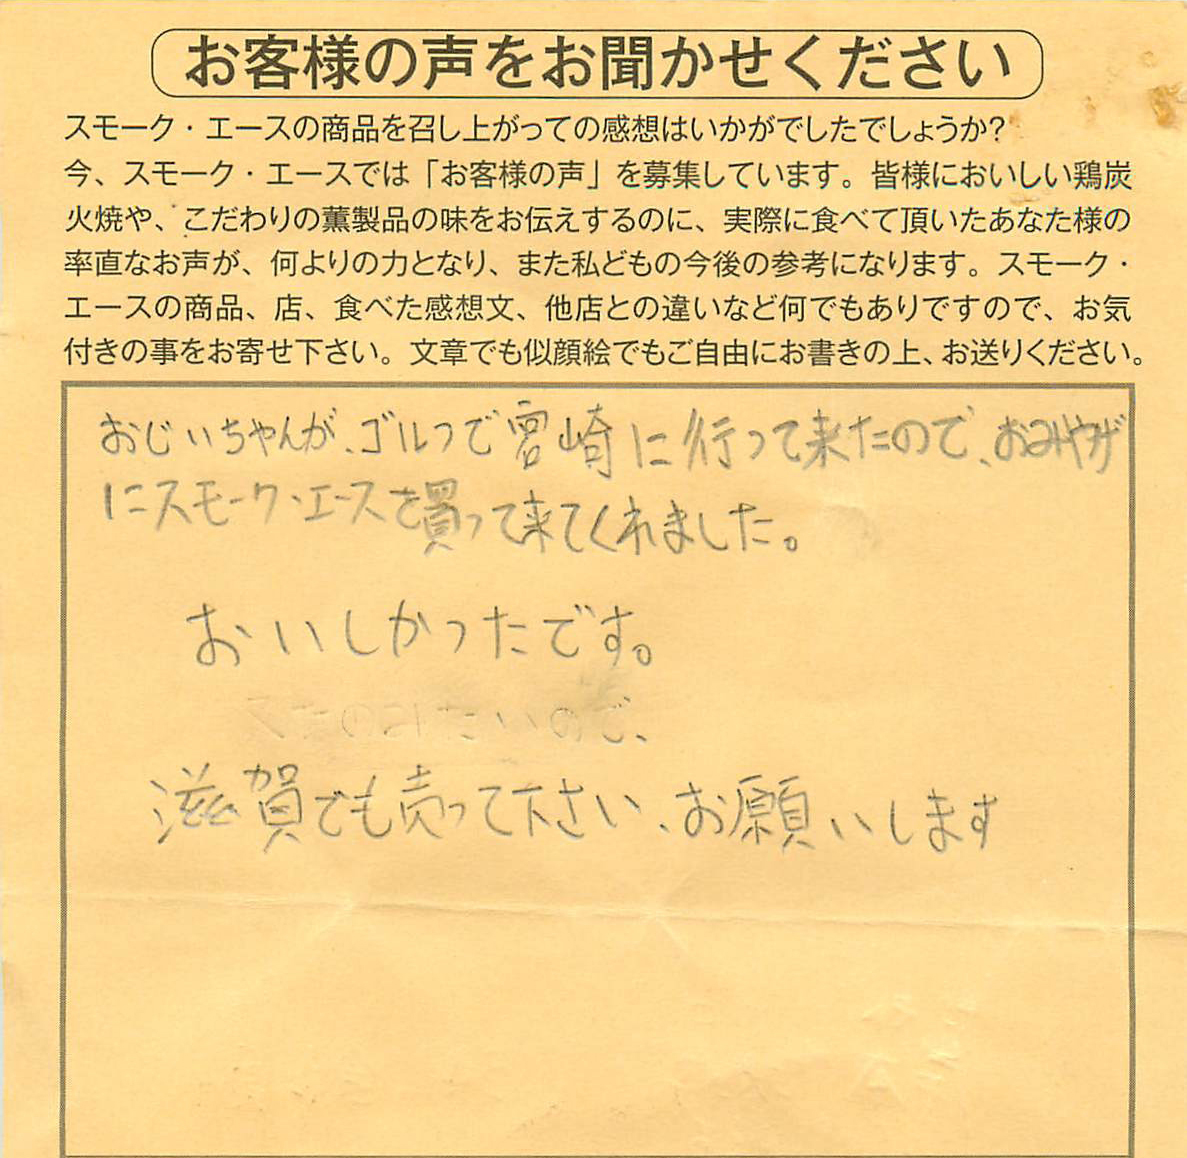 お客様の声をお聞かせください
スモーク・エースの商品を召し上がっての感想はいかがでしたでしょうか？
今、スモーク・エースでは「お客様の声」を募集しています。皆様においしい鶏炭
火焼や、こだわりの薫製品の味をお伝えするのに、実際に食べて頂いたあなた様の
率直なお声が、何よりの力となり、また私どもの今後の参考になります。スモーク・
エースの商品、店、食べた感想文、他店との違いなど何でもありですので、お気
付きの事をお寄せ下さい。文章でも似顔絵でもご自由にお書きの上、お送りください。
おじいちゃんが、ゴルフで宮崎に行って来たので、おみやげ
にスモーク・エースを買って来てくれました。
おいしかったです。
ので、
滋賀でも売って下さい、お願いします